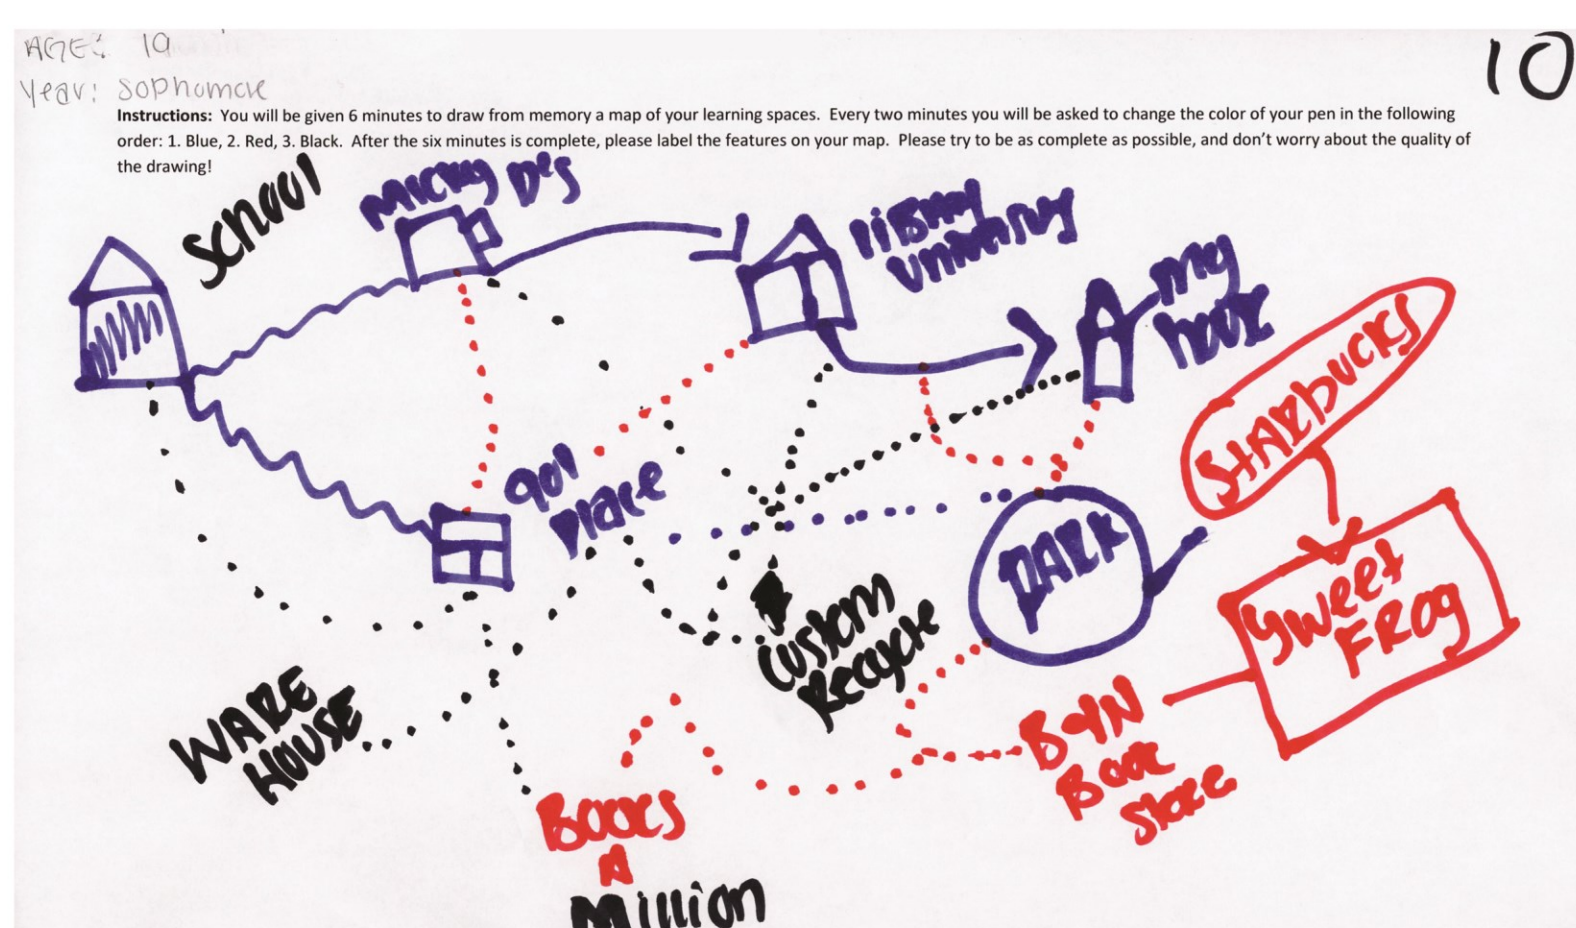 AGE: 19
Year: Sophomore
10
Instructions: You will be given 6 minutes to draw from memory a map of your learning spaces. Every two minutes you will be asked to change the color of your pen in the following
order: 1. Blue, 2. Red, 3. Black. After the six minutes is complete, please label the features on your map. Please try to be as complete as possible, and don't worry about the quality of
the drawing!
School
Micky D's
library
University
my
house
STARbUCKS
901
Place
PARK
Sweet
FROg
Custom
Recycle
WARE
HOUSE
B4N
Book
Store
Books
A
Million